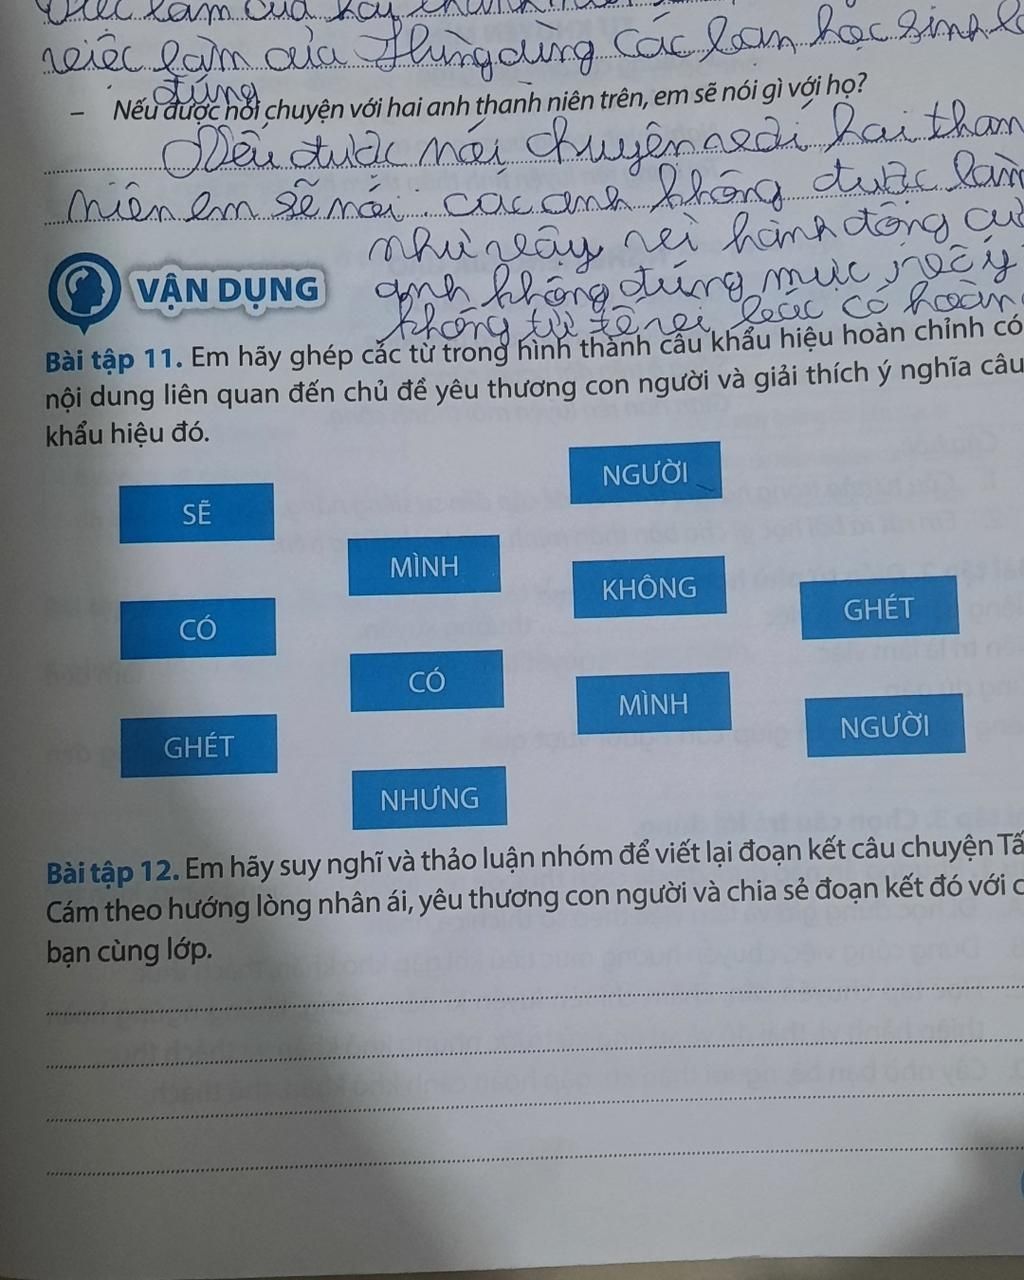 việc làm của hai thanh niên
việc làm của Hùng dùng các bạn học sinh là
đúng
– Nếu được nói chuyện với hai anh thanh niên trên, em sẽ nói gì với họ?
Nếu được nói chuyện với hai thanh
niên em sẽ nói. các anh không được làm
như vậy vì hành động của
anh không đúng mực,
không tử tế vì bác có hoàn
VẬN DỤNG
Bài tập 11. Em hãy ghép các từ trong hình thành câu khẩu hiệu hoàn chỉnh có
nội dung liên quan đến chủ đề yêu thương con người và giải thích ý nghĩa câu
khẩu hiệu đó.
NGƯỜI
SẼ
MÌNH
KHÔNG
GHÉT
CÓ
CÓ
MÌNH
NGƯỜI
GHÉT
NHƯNG
Bài tập 12. Em hãy suy nghĩ và thảo luận nhóm để viết lại đoạn kết câu chuyện Tấ
Cám theo hướng lòng nhân ái, yêu thương con người và chia sẻ đoạn kết đó với c
bạn cùng lớp.